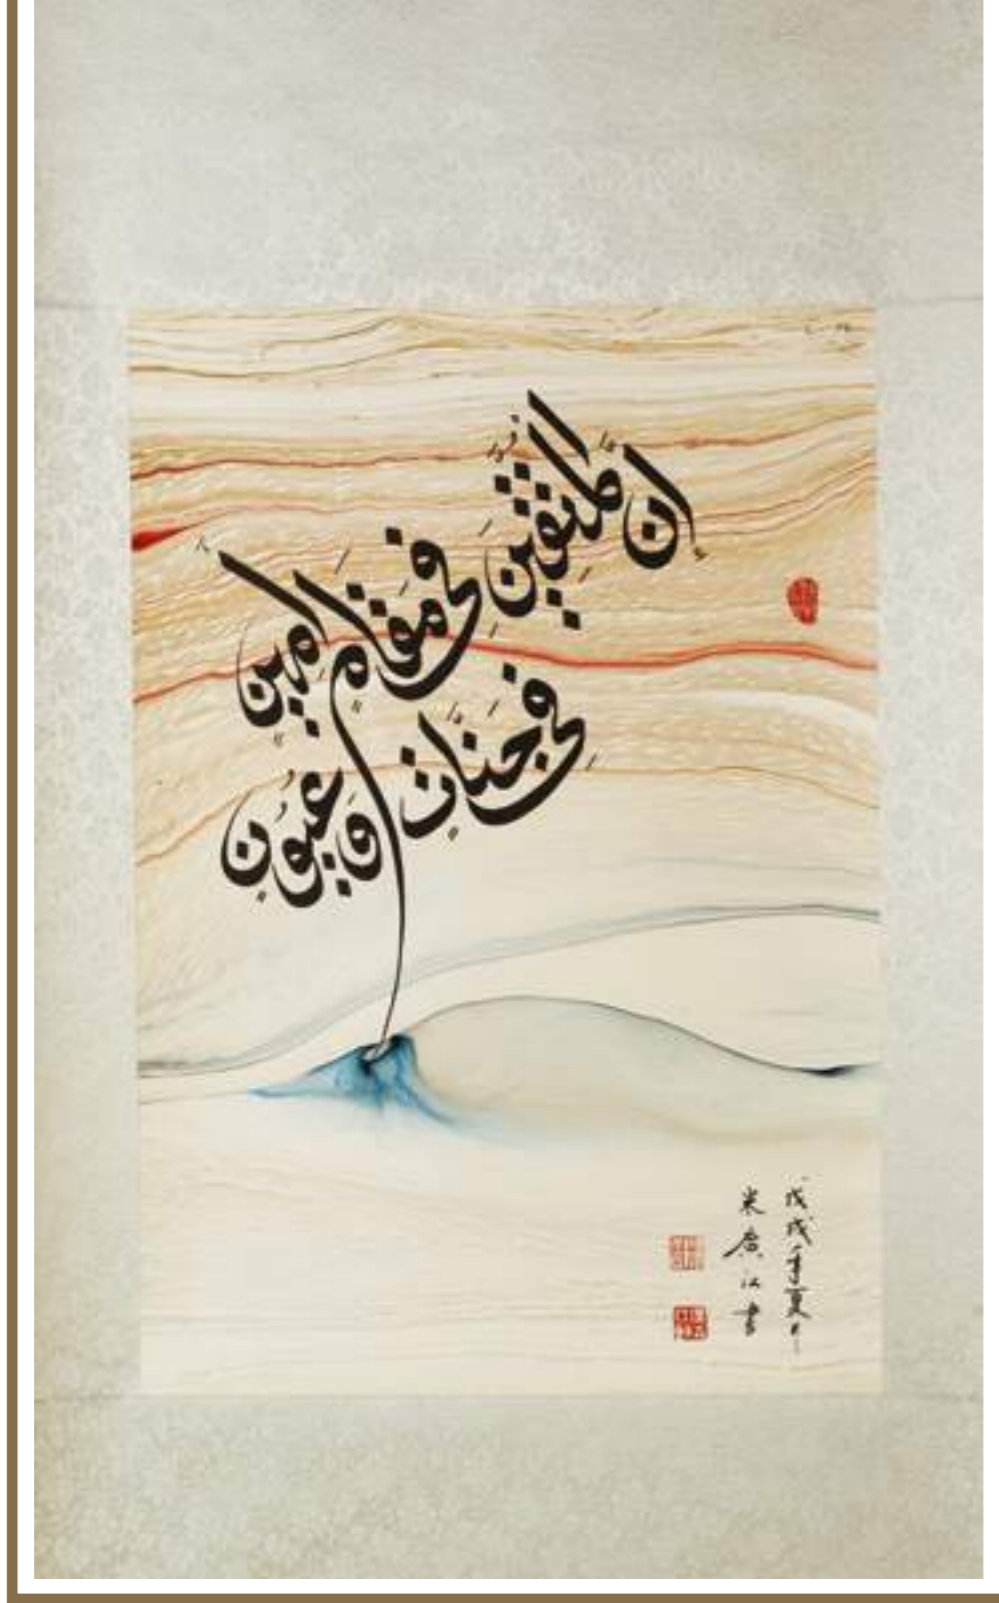 إن المتقين في مقام أمين
في جنات وعيون
戊戌年夏月
米廣江書